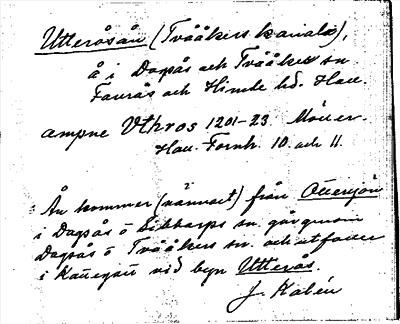 Utterösån (Tvååkers kanal),
å i Dagsås och Tvååker sn
Faurås och Himle hd. Hall.
ampne Vthros 1201-23. Möller.
Hall. Fornh. 10. och 11.
Ån kommer (närmast) från Ottersjön
i Dagsås o Sibbarps sn. går genom
Dagsås o Tvååkers sn. och utfaller
i Kattegatt vid byn Utterås.
J. Kalén